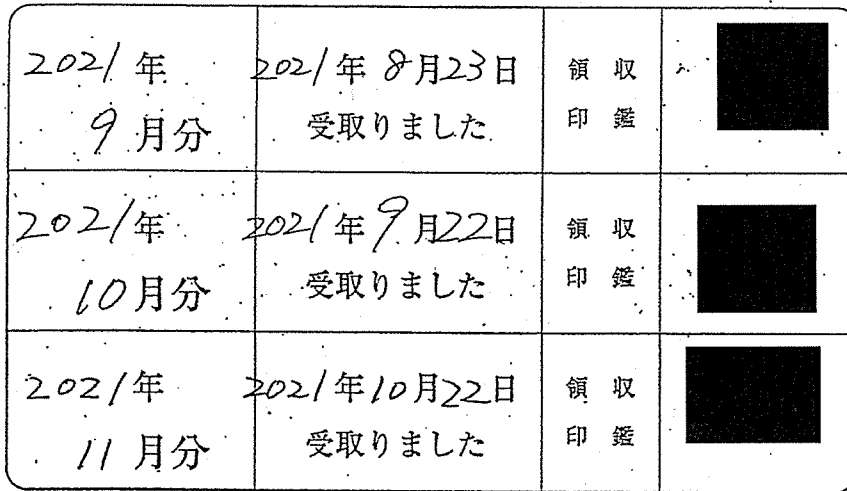 2021年
9月分
2021年8月23日
受取りました
領収
印鑑
2021年
10月分
2021年9月22日
受取りました
領収
印鑑
2021年
11月分
2021年10月22日
受取りました
領収
印鑑